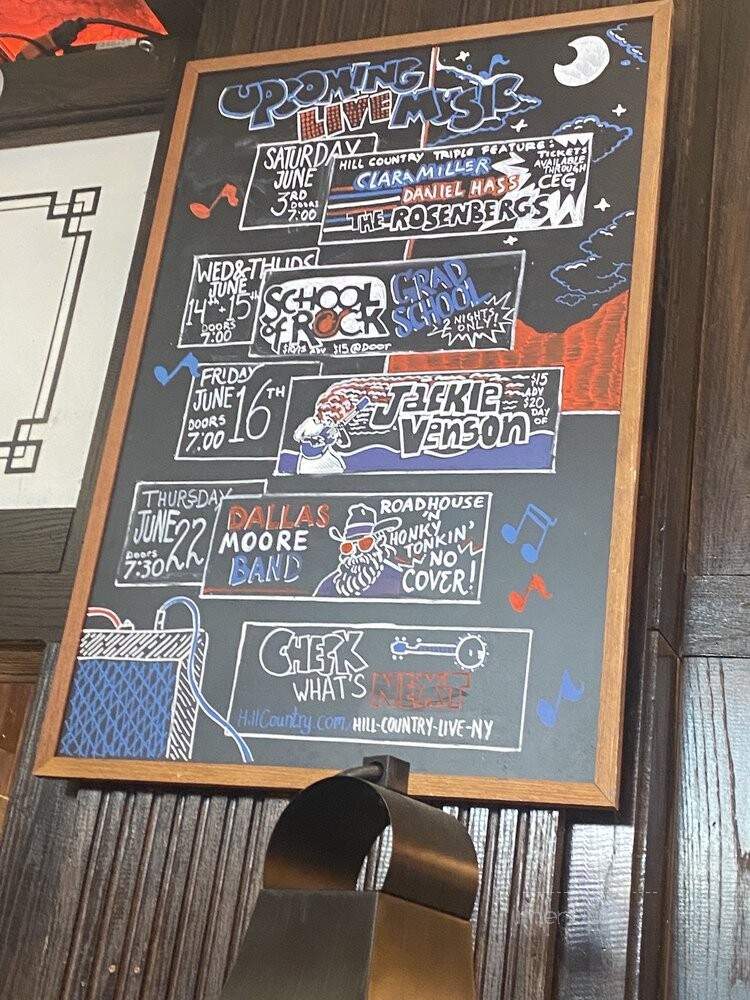 UPCOMING
LIVE MUSIC
SATURDAY
JUNE
3RD
DOORS
7:00
HILL COUNTRY TRIPLE FEATURE:
CLARA MILLER
DANIEL HASS
THE ROSENBERGS
TICKETS
AVAILABLE
THROUGH
CEG
WED & THURS
JUNE
14TH + 15TH
DOORS
7:00
SCHOOL
of ROCK
ADV $15 @ DOOR
GRAD
SCHOOL
2 NIGHTS
ONLY!
FRIDAY
JUNE 16TH
DOORS
7:00
Jackie
Venson
$15
ADV
$20
DAY
OF
THURSDAY
JUNE 22
DOORS
7:30
DALLAS
MOORE
BAND
ROADHOUSE
'N
HONKY
TONKIN'
NO
COVER!
CHECK
WHAT'S NEXT
HillCountry.com/HILL-COUNTRY-LIVE-NY